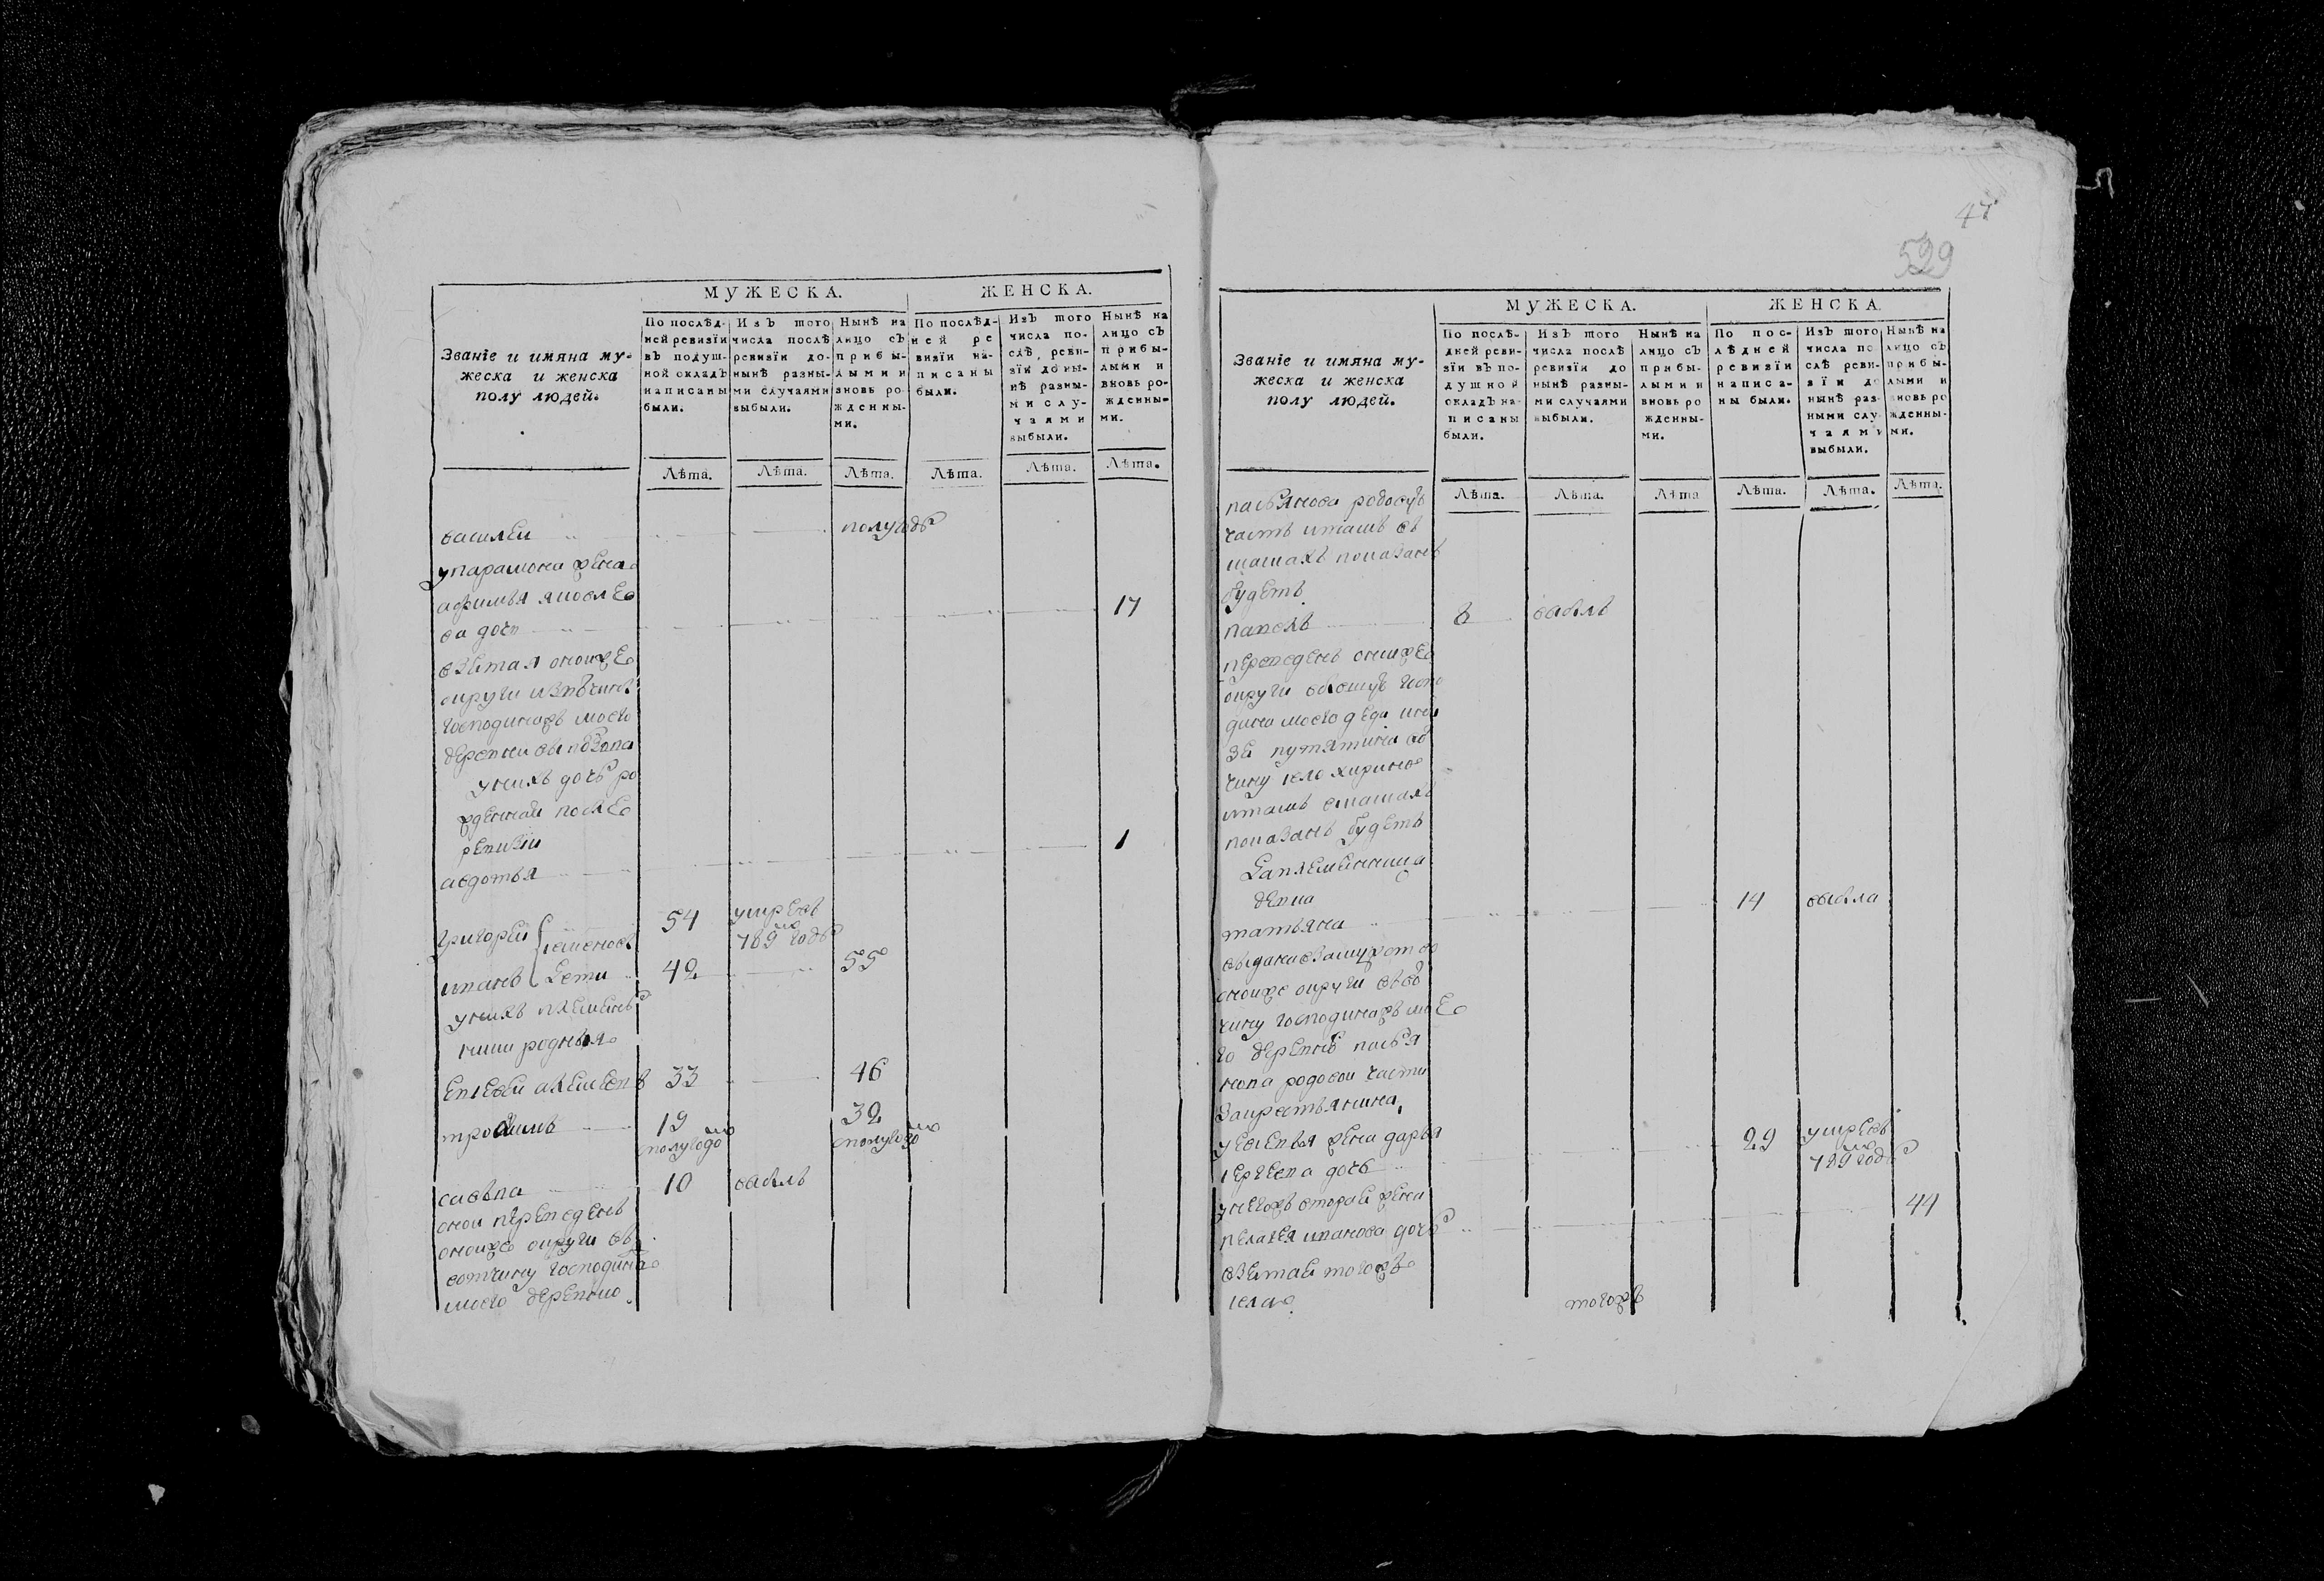 47
529
МУЖЕСКА. ЖЕНСКА.
Званіе и имяна му-
жеска и женска
полу людей.
По послѣд-
ней ревизіи
въ подуш-
ной окладъ
написаны
были.
Изъ того
числа послѣ
ревизіи до-
нынѣ разны-
ми случаями
выбыли.
Нынѣ на
лицо съ
прибы-
лыми и
вновь ро-
жденны-
ми.
По послѣд-
ней ре
визіи на-
писаны
были.
Изъ того
числа по-
слѣ, реви-
зіи до ны-
нѣ разны-
ми слу-
чаями
выбыли.
Нынѣ на
лицо съ
прибы-
лыми и
вновь ро-
жденны-
ми.
Лѣта. Лѣта. Лѣта. Лѣта. Лѣта. Лѣта.
василеи полугодъ
упарамона жена
афимья
ва дочь 17
взятая оноиже
округи
господинажъ моего
деревни
унихъ дочь ро
жденнаи после
ревизіи
авдотья 1
григореи семеновы 54 умревъ 789 годъ
иванъ дети 42 55
унихъ племянъ
ники родныя
евсевеи алексеевъ 33 46
трофимъ 19 сполугодо 32 сполугодо
савва 10 выбылъ
онои переведенъ
оноиже округи въ
вотчину господина
моего деревню
МУЖЕСКА. ЖЕНСКА.
Званіе и имяна му-
жеска и женска
полу людей.
По послѣ-
дней реви-
зіи въ по-
душной
окладъ на-
писаны
были.
Изъ того
числа послѣ
ревизіи до
нынѣ разны-
ми случаями
выбыли.
Нынѣ на
лицо съ
прибы-
лыми и
вновь ро
жденны-
ми.
По пос-
лѣдней
ревизіи
написа-
ны были.
Изъ того
числа по
слѣ реви-
зіи до
нынѣ раз-
ными слу
чаями
выбыли.
Нынѣ на
лицо съ
прибы-
лыми и
вновь ро
жденны-
ми.
Лѣта. Лѣта. Лѣта Лѣта. Лѣта. Лѣта.
родовую
часть итамъ въ
показанъ
будетъ
павелъ 8 выбылъ
переведенъ оноиже
округи
дина моего деда кня
зя путятина вот
чину село кирино
итамъ
показанъ будетъ
Ea племянница
девка
татьяна 14 выбыла
выдана взамужство
оноиже округи въ вот
чину господинажъ мое
го деревню
нова родовои части
закрестьянина
уевсевья жена дарья 29 умревъ
сергеева дочь 789 годъ
унегожъ вторая жена 44
пелагея иванова дочь
взятая тогожъ
села
тогожъ